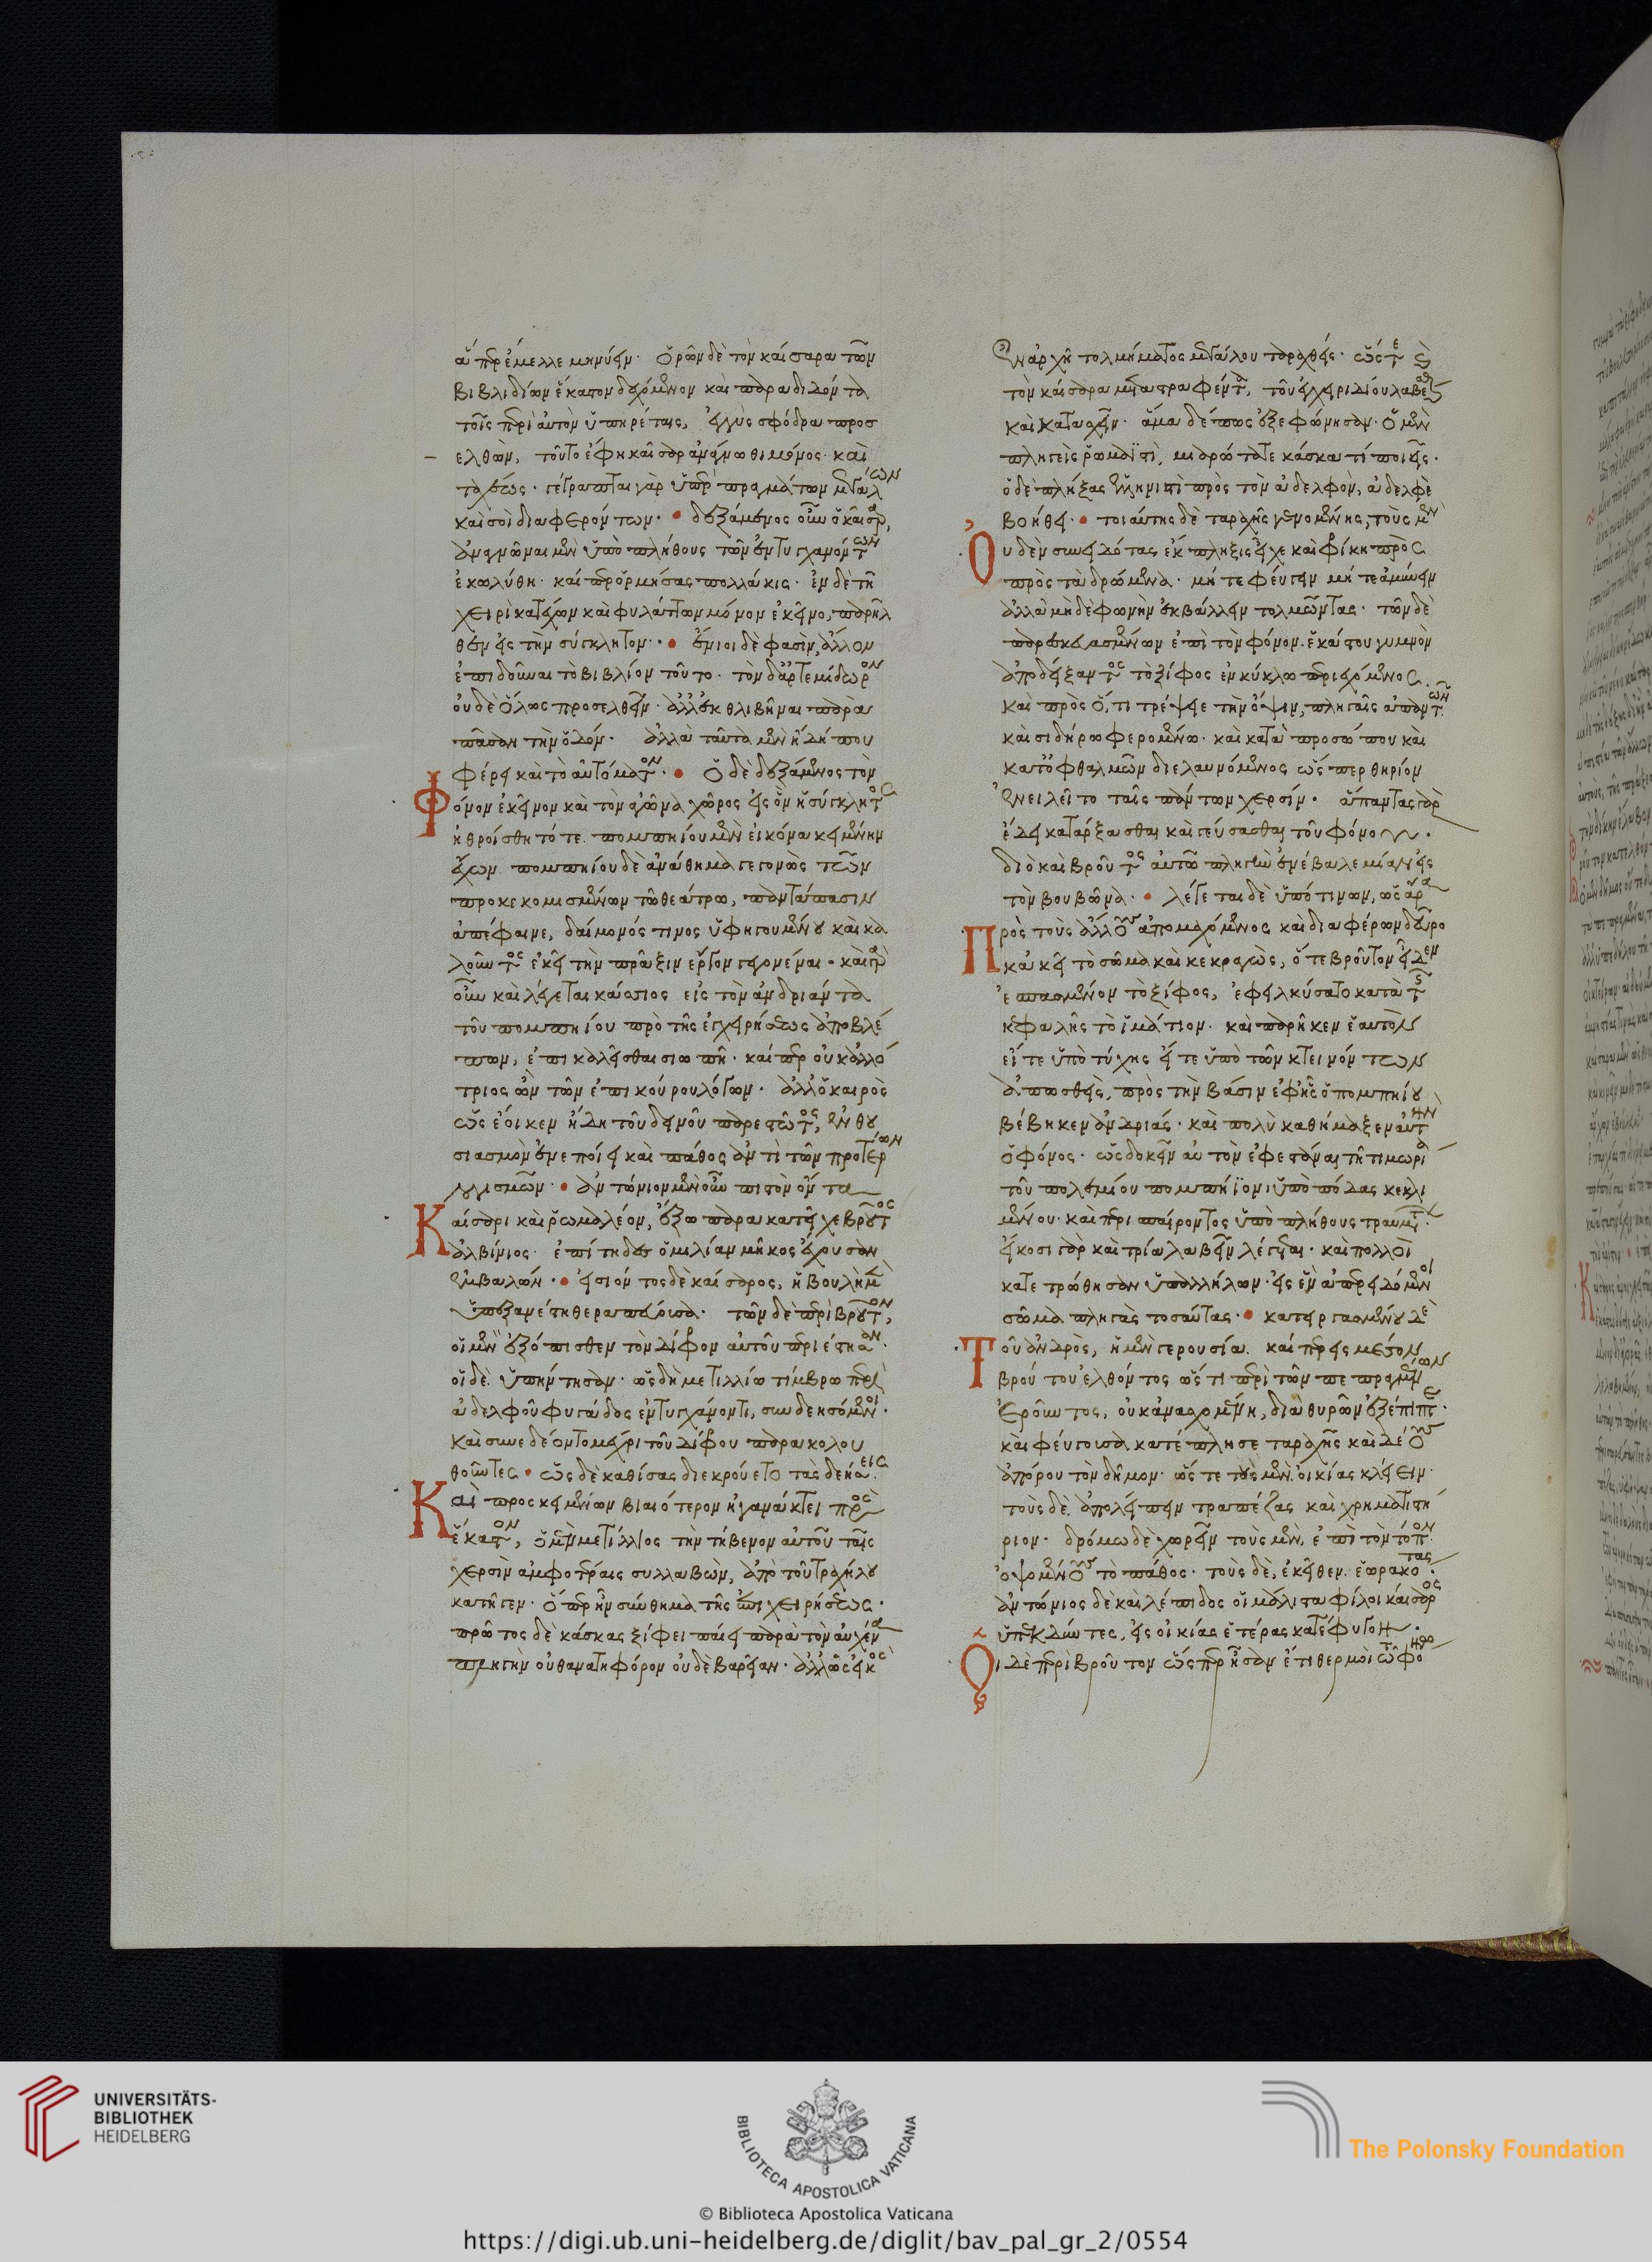 ἅπερ ἔμελλε μηνύειν· ὁρῶν δὲ τὸν καίσαρα τῶν
βιβλιδίων ἕκαστον δεχόμενον καὶ παραδιδόντα
τοῖς περὶ αὐτὸν ὑπηρέταις, ἐγγὺς σφόδρα προσ
ελθὼν, τοῦτο ἔφη καῖσαρ ἀνάγνωθι μόνος· καὶ
ταχέως· γέγραπται γὰρ ὑπὲρ πραγμάτων μεγάλων
καὶ σοὶ διαφερόντων· δεξάμενος οὖν ὁ καῖσαρ,
ἀναγνῶναι μὲν ὑπὸ πλήθους τῶν ἐντυγχανόντων
ἐκωλύθη· καίπερ ὁρμήσας πολλάκις· ἐν δὲ τῇ
χειρὶ κατέχων καὶ φυλάττων μόνον ἐκεῖνο, παρῆλ
θεν εἰς τὴν σύγκλητον· ἔνιοι δὲ φασὶν, ἄλλον
ἐπιδοῦναι τὸ βιβλίον τοῦτο· τὸν δ' ἀρτεμίδωρον
οὐδὲ ὅλως προσελθεῖν· ἀλλ' ἐκθλιβῆναι παρὰ
πᾶσαν τὴν ὁδόν· ἀλλὰ ταῦτα μὲν ἤδη που
φέρει καὶ τὸ αὐτόματον· ὁ δὲ δεξάμενος τὸν
Φόνον ἐκεῖνον καὶ τὸν ἀγῶνα χῶρος εἰς ὃν ἡ σύγκλητος
ἠθροίσθη τότε. πομπηίου μὲν εἰκόνα κειμένην
ἔχων πομπηίου δὲ ἀνάθημα γεγονὼς τῶν
προκεκοσμημένων τῷ θεάτρῳ, παντάπασιν
ἀπέφαινε, δαίμονός τινος ὑφηγουμένου καὶ κα
λοῦντος ἐκεῖ τὴν πρᾶξιν ἔργον γεγονέναι· καὶ γὰρ
οὖν καὶ λέγεται κάσσιος εἰς τὸν ἀνδριάντα
τοῦ πομπηίου πρὸ τῆς ἐγχειρήσεως ἀποβλέ
πων, ἐπικαλεῖσθαι σιωπῇ· καίπερ οὐκ ἀλλό
τριος ὢν τῶν ἐπικούρου λόγων· ἀλλ' ὁ καιρὸς
ὡς ἔοικεν ἤδη τοῦ δεινοῦ παρεστῶτος, ἐνθου
σιασμὸν ἐνεποίει καὶ πάθος ἀντὶ τῶν προτέρων
λογισμῶν· ἀντώνιον μὲν οὖν πιστὸν ὄντα
Καίσαρι καὶ ῥωμαλέον, ἔξω παρακατεῖχε βροῦτος
ἀλβίνιος· ἐπίτηδες ὁμιλίαν μῆκος ἔχουσαν
ἐμβαλών· εἰσιόντος δὲ καίσαρος, ἡ βουλὴ μὲν
ὑπεξανέστη θεραπεύουσα· τῶν δὲ περὶ βροῦτον,
οἱ μὲν ἐξόπισθεν τὸν δίφρον αὐτοῦ περιέστησαν·
οἱ δὲ ὑπήντησαν· ὡς δὴ μετιλλίῳ τίμβρῳ περὶ
ἀδελφοῦ φυγάδος ἐντυγχάνοντι, συνδεησόμενοι·
καὶ συνεδέοντο μέχρι τοῦ δίφρου παρακολου
θοῦντες· ὡς δὲ καθίσας διεκρούετο τὰς δεήσεις
Καὶ προσκειμένων βιαιότερον ἠγανάκτει πρὸς
ἕκαστον, ὁ μὲν μετίλλιος τὴν τήβεννον αὐτοῦ ταῖς
χερσὶν ἀμφοτέραις συλλαβὼν, ἀπὸ τοῦ τραχήλου
κατῆγεν· ὅπερ ἦν σύνθημα τῆς ἐπιχειρήσεως·
πρῶτος δὲ κάσκας ξίφει παίει παρὰ τὸν αὐχένα
πληγὴν οὐ θανατηφόρον οὐδὲ βαρεῖαν· ἀλλ' ὡς εἰκὸς
ἐν ἀρχῇ τολμήματος μεγάλου ταραχθείς· ὥστε καὶ
τὸν καίσαρα μεταστραφέντα, τοῦ ἐγχειριδίου λαβέσθαι
καὶ κατασχεῖν· ἅμα δέ πως ἐξεφώνησαν· ὁ μὲν
πληγεὶς ῥωμαϊστὶ, μιαρώτατε κάσκα τί ποιεῖς·
ὁ δὲ πλήξας ἑλληνιστὶ πρὸς τὸν ἀδελφὸν, ἀδελφὲ
βοήθει· τοιαύτης δὲ τῆς ἀρχῆς γενομένης, τοὺς μὲν
Οὐδὲν συνειδότας ἔκπληξις εἶχε καὶ φρίκη πρὸς
πρὸς τὰ δρώμενα· μήτε φεύγειν μήτε ἀμύνειν
ἀλλὰ μηδὲ φωνὴν ἐκβάλλειν τολμῶντας· τῶν δὲ
παρεσκευασμένων ἐπὶ τὸν φόνον, ἑκάστου γυμνὸν
ἀποδείξαντος τὸ ξίφος ἐν κύκλῳ περιεχόμενος.
καὶ πρὸς ὅ, τι τρέψειε τὴν ὄψιν, πληγαῖς ἀπαντῶν
καὶ σιδήρῳ φερομένῳ· καὶ κατὰ προσώπου καὶ
κατ' ὀφθαλμῶν διελαυνόμενος ὥσπερ θηρίον
ἐνειλεῖτο ταῖς πάντων χερσίν· ἅπαντας γὰρ
ἔδει κατάρξασθαι καὶ γεύσασθαι τοῦ φόνου·
διὸ καὶ βροῦτος αὐτῷ πληγὴν ἐνέβαλε μίαν εἰς
τὸν βουβῶνα· λέγεται δὲ ὑπό τινων, ὡς ἄρα
Πρὸς τοὺς ἄλλους ἀπομαχόμενος καὶ διαφέρων δεῦρο
κἀκεῖ τὸ σῶμα καὶ κεκραγὼς, ὅτε βροῦτον εἶδεν
ἐσπασμένον τὸ ξίφος, ἐφειλκύσατο κατὰ τῆς
κεφαλῆς τὸ ἱμάτιον· καὶ παρῆκεν ἑαυτὸν
εἴτε ὑπὸ τύχης εἴτε ὑπὸ τῶν κτεινόντων
ἀπωσθεὶς, πρὸς τὴν βάσιν ἐφ' ἧς ὁ πομπηίου
βέβηκεν ἀνδριάς· καὶ πολὺ καθήμαξεν αὐτὴν
ὁ φόνος· ὡς δοκεῖν αὐτὸν ἐφεστάναι τῇ τιμωρίᾳ
τοῦ πολεμίου πομπήϊον· ὑπὸ πόδας κεκλι
μένου· καὶ περισπαίροντος ὑπὸ πλήθους τραυμάτων·
εἴκοσι γὰρ καὶ τρία λαβεῖν λέγεται· καὶ πολλοὶ
κατετρώθησαν ὑπ' ἀλλήλων· εἰς ἓν ἀπερειδόμενοι
σῶμα πληγὰς τοσαύτας· κατειργασμένου δὲ
Τοῦ ἀνδρὸς, ἡ μὲν γερουσία. καίπερ εἰς μέσον
βρούτου ἐλθόντος ὥς τι περὶ τῶν πεπραγμένων
ἐροῦντος, οὐκ ἀνασχομένη, διὰ θυρῶν ἐξέπιπτε·
καὶ φεύγουσα κατέπλησε ταραχῆς καὶ δέους
ἀπόρου τὸν δῆμον· ὥστε τοὺς μὲν οἰκίας κλείειν·
τοὺς δὲ ἀπολείπειν τραπέζας καὶ χρηματιστή
ριον· δρόμῳ δὲ χωρεῖν τοὺς μὲν, ἐπὶ τὸν τόπον
ὀψομένους τὸ πάθος· τοὺς δὲ, ἐκεῖθεν ἑωρακότας·
ἀντώνιος δὲ καὶ λέπιδος οἱ μάλιστα φίλοι καίσαρος
ὑπεκδύντες, εἰς οἰκίας ἑτέρας κατέφυγον·
Οἱ δὲ περὶ βροῦτον ὥσπερ ἦσαν ἔτι θερμοὶ τῷ φόνῳ
UNIVERSITÄTS-
BIBLIOTHEK
HEIDELBERG
BIBLIOTECA APOSTOLICA VATICANA
The Polonsky Foundation
© Biblioteca Apostolica Vaticana
https://digi.ub.uni-heidelberg.de/diglit/bav_pal_gr_2/0554